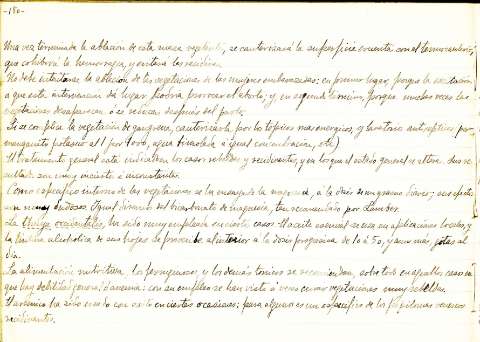 -180-
Una vez terminada la ablacion de esta masa vegetante, se cauterizará la superficie cruenta con el termocauterio,
que cohibirá la hemorragia, y evitará las recidivas.
No debe intentarse la ablacion de las vegetaciones de las mujeres embarazadas: en primer lugar, porque la excitacion
a que esta intervencion da lugar podria provocar el aborto; y, en segundo término, porque muchas veces las
vegetaciones desaparecen ó se reducen después del parto.
Si se complica la vegetación de gangrena, cauterizarla por los tópicos mas enérgicos y lavatorios antisépticos per-
manganato potásico al 1 por 1000, agua fenicada á igual concentracion, etc)
El tratamiento general está indicado en los casos rebeldes y recidivantes, y en los que el estado general se altera. Sus re-
sultados son muy inciertos é inconstantes.
Como específico interno de las vegetaciones se ha ensayado la magnesia, á la dósis de un gramo diario; sus efectos
son muy dudosos. Igual diremos del bicarbonato de magnesia, tan recomendado por
La Thuya occidentalis, ha sido muy empleada en ciertos casos. El aceite esencial se usa en aplicaciones locales, y
la tintura alcohólica de sus hojas se prescribe al interior á la dosis progresiva de 10 á 50, y aun mas, gotas al
día.
La alimentación nutritiva, los ferruginosos, y los demás tónicos se recomiendan, sobre todo en aquellos casos en
que hay debilidad general, ó anemia: con su empleo se han visto á veces curar vegetaciones muy rebeldes.
El arsénico ha sido usado con éxito en ciertas ocasiones; para algunos es un específico de los papilomas venereos
recidivantes.